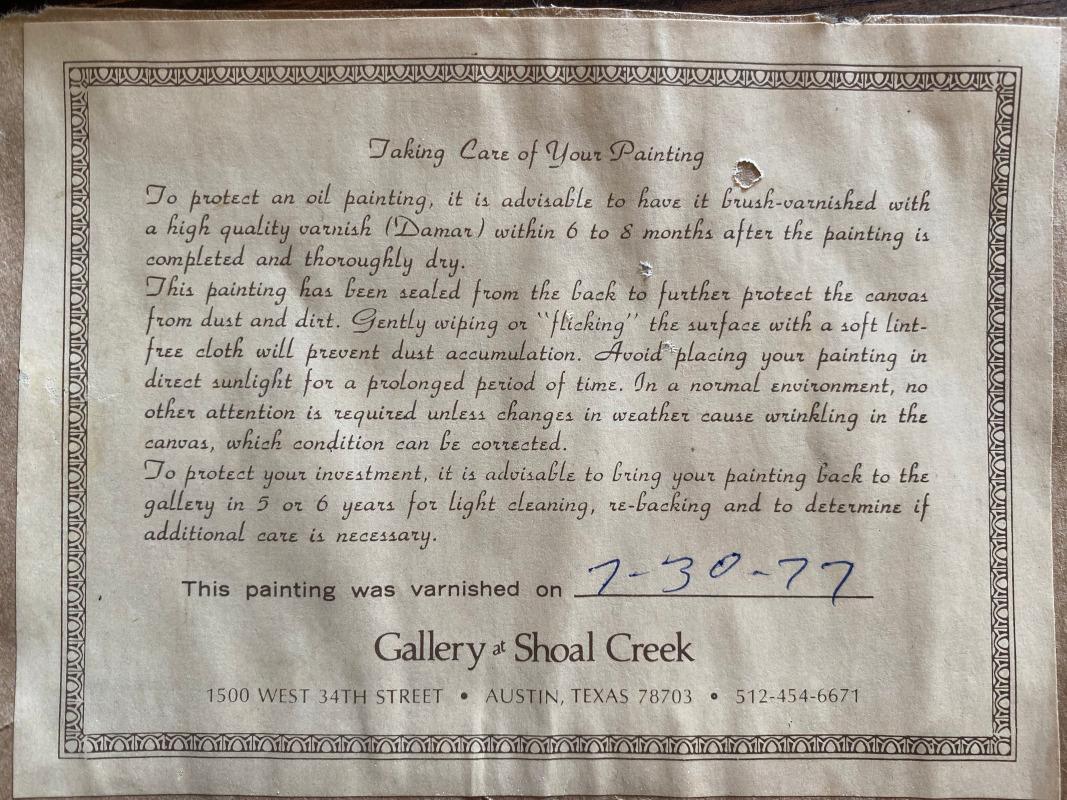 Taking Care of Your Painting
To protect an oil painting, it is advisable to have it brush-varnished with
a high quality varnish (Damar) within 6 to 8 months after the painting is
completed and thoroughly dry.
This painting has been sealed from the back to further protect the canvas
from dust and dirt. Gently wiping or "flicking" the surface with a soft lint-
free cloth will prevent dust accumulation. Avoid placing your painting in
direct sunlight for a prolonged period of time. In a normal environment, no
other attention is required unless changes in weather cause wrinkling in the
canvas, which condition can be corrected.
To protect your investment, it is advisable to bring your painting back to the
gallery in 5 or 6 years for light cleaning, re-backing and to determine if
additional care is necessary.
This painting was varnished on 7-30-77
Gallery at Shoal Creek
1500 WEST 34TH STREET • AUSTIN, TEXAS 78703 • 512-454-6671